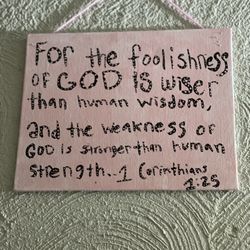 For the foolishness
of GOD is wiser
than human wisdom,
and the weakness of
GOD is stronger than human
strength. 1 Corinthians
1:25